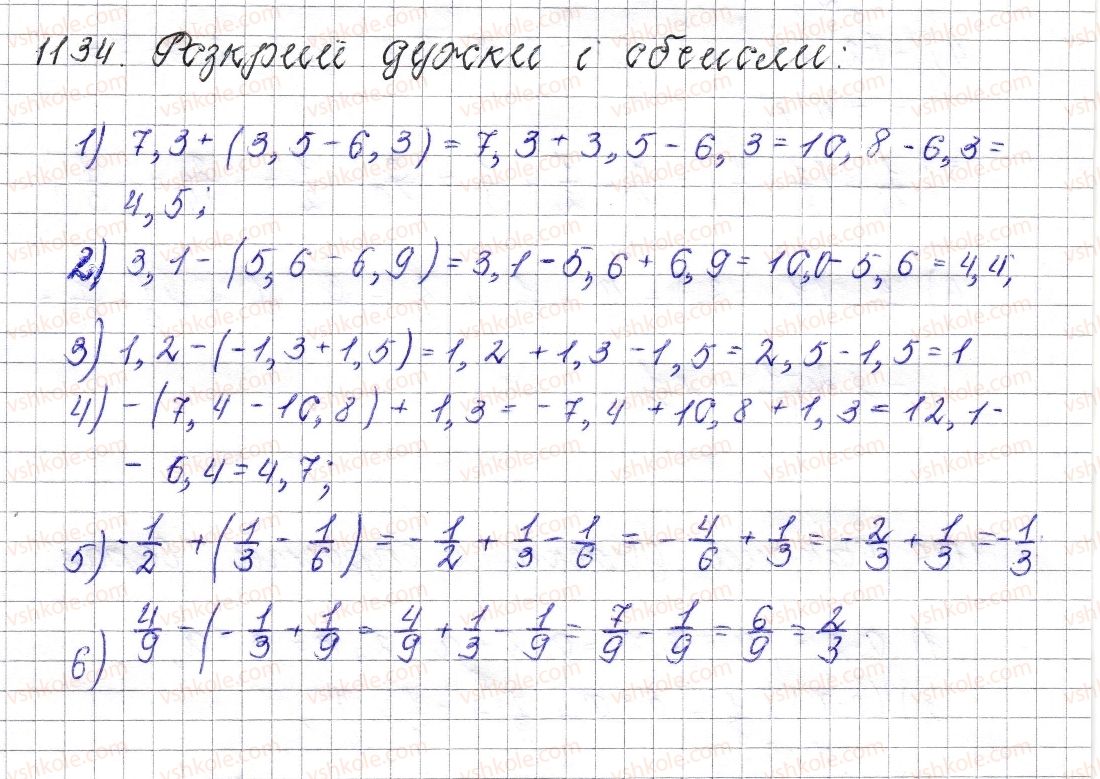 1134. Розкрий дужки і обчисли:
1) 7,3 + (3,5 - 6,3) = 7,3 + 3,5 - 6,3 = 10,8 - 6,3 =
4,5;
2) 3,1 - (5,6 - 6,9) = 3,1 - 5,6 + 6,9 = 10,0 - 5,6 = 4,4;
3) 1,2 - (-1,3 + 1,5) = 1,2 + 1,3 - 1,5 = 2,5 - 1,5 = 1
4) - (7,4 - 10,8) + 1,3 = - 7,4 + 10,8 + 1,3 = 12,1 -
- 6,4 = 4,7;
5) - 1/2 + (1/3 - 1/6) = - 1/2 + 1/3 - 1/6 = - 4/6 + 1/3 = - 2/3 + 1/3 = - 1/3.
6) 4/9 - (- 1/3 + 1/9 = 4/9 + 1/3 - 1/9 = 7/9 - 1/9 = 6/9 = 2/3.